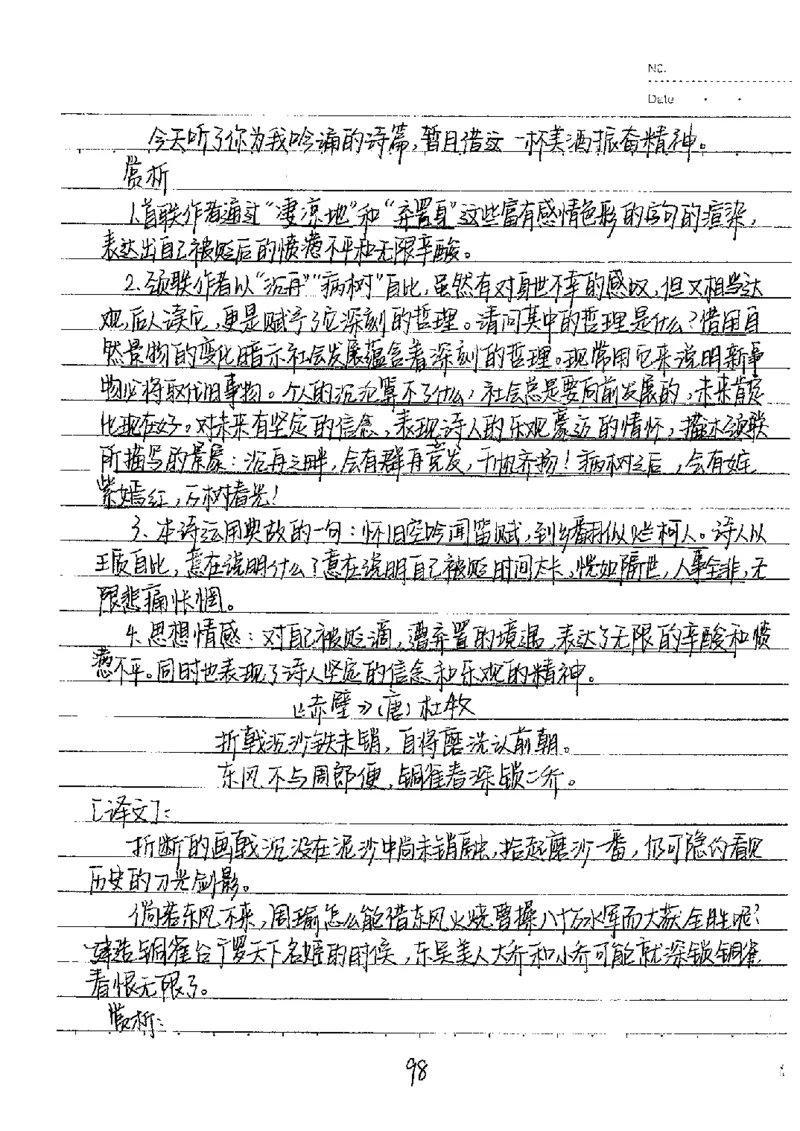 NO.
Date
今天听了你为我吟诵的诗篇，暂且借这一杯美酒振奋精神。
赏析
1.首联作者通过“凄凉地”和“弃置身”这些富有感情色彩的词句的渲染，
表达出自己被贬后的愤懑不平和无限辛酸。
2.颈联作者以“沉舟”“病树”自比，虽然有对身世不幸的感叹，但又相当达
观，后人读它，更是赋予了它深刻的哲理。请问其中的哲理是什么？借用自
然景物的变化暗示社会发展蕴含着深刻的哲理。现常用它来说明新事
物必将取代旧事物。个人的沉沦算不了什么，社会总是要向前发展的，未来肯定
比现在好。对未来有坚定的信念，表现诗人的乐观豪迈的情怀，描述颈联
所描写的景象：沉舟之畔，会有群舟竞发，千帆齐扬！病树之后，会有姹
紫嫣红，万树春光！
3、本诗运用典故的一句：怀旧空吟闻笛赋，到乡翻似烂柯人。诗人以
王质自比，意在说明什么？意在说明自己被贬时间太长，恍如隔世，人事全非，无
限悲痛怅惘。
4.思想情感：对自己被贬谪，遭弃置的境遇，表达了无限的辛酸和愤
懑不平。同时也表现了诗人坚定的信念和乐观的精神。
《赤壁》（唐）杜牧
折戟沉沙铁未销，自将磨洗认前朝。
东风不与周郎便，铜雀春深锁二乔。
[译文]：
折断的画戟沉没在泥沙中尚未销融，拾起磨沙一番，仍可隐约看见
历史的刀光剑影。
倘若东风不来，周瑜怎么能借东风火烧曹操八十万水军而大获全胜呢？
建造铜雀台于罗天下名婼的时候，东吴美人大乔和小乔可能就深锁铜雀
春恨无限了。
赏析：
98